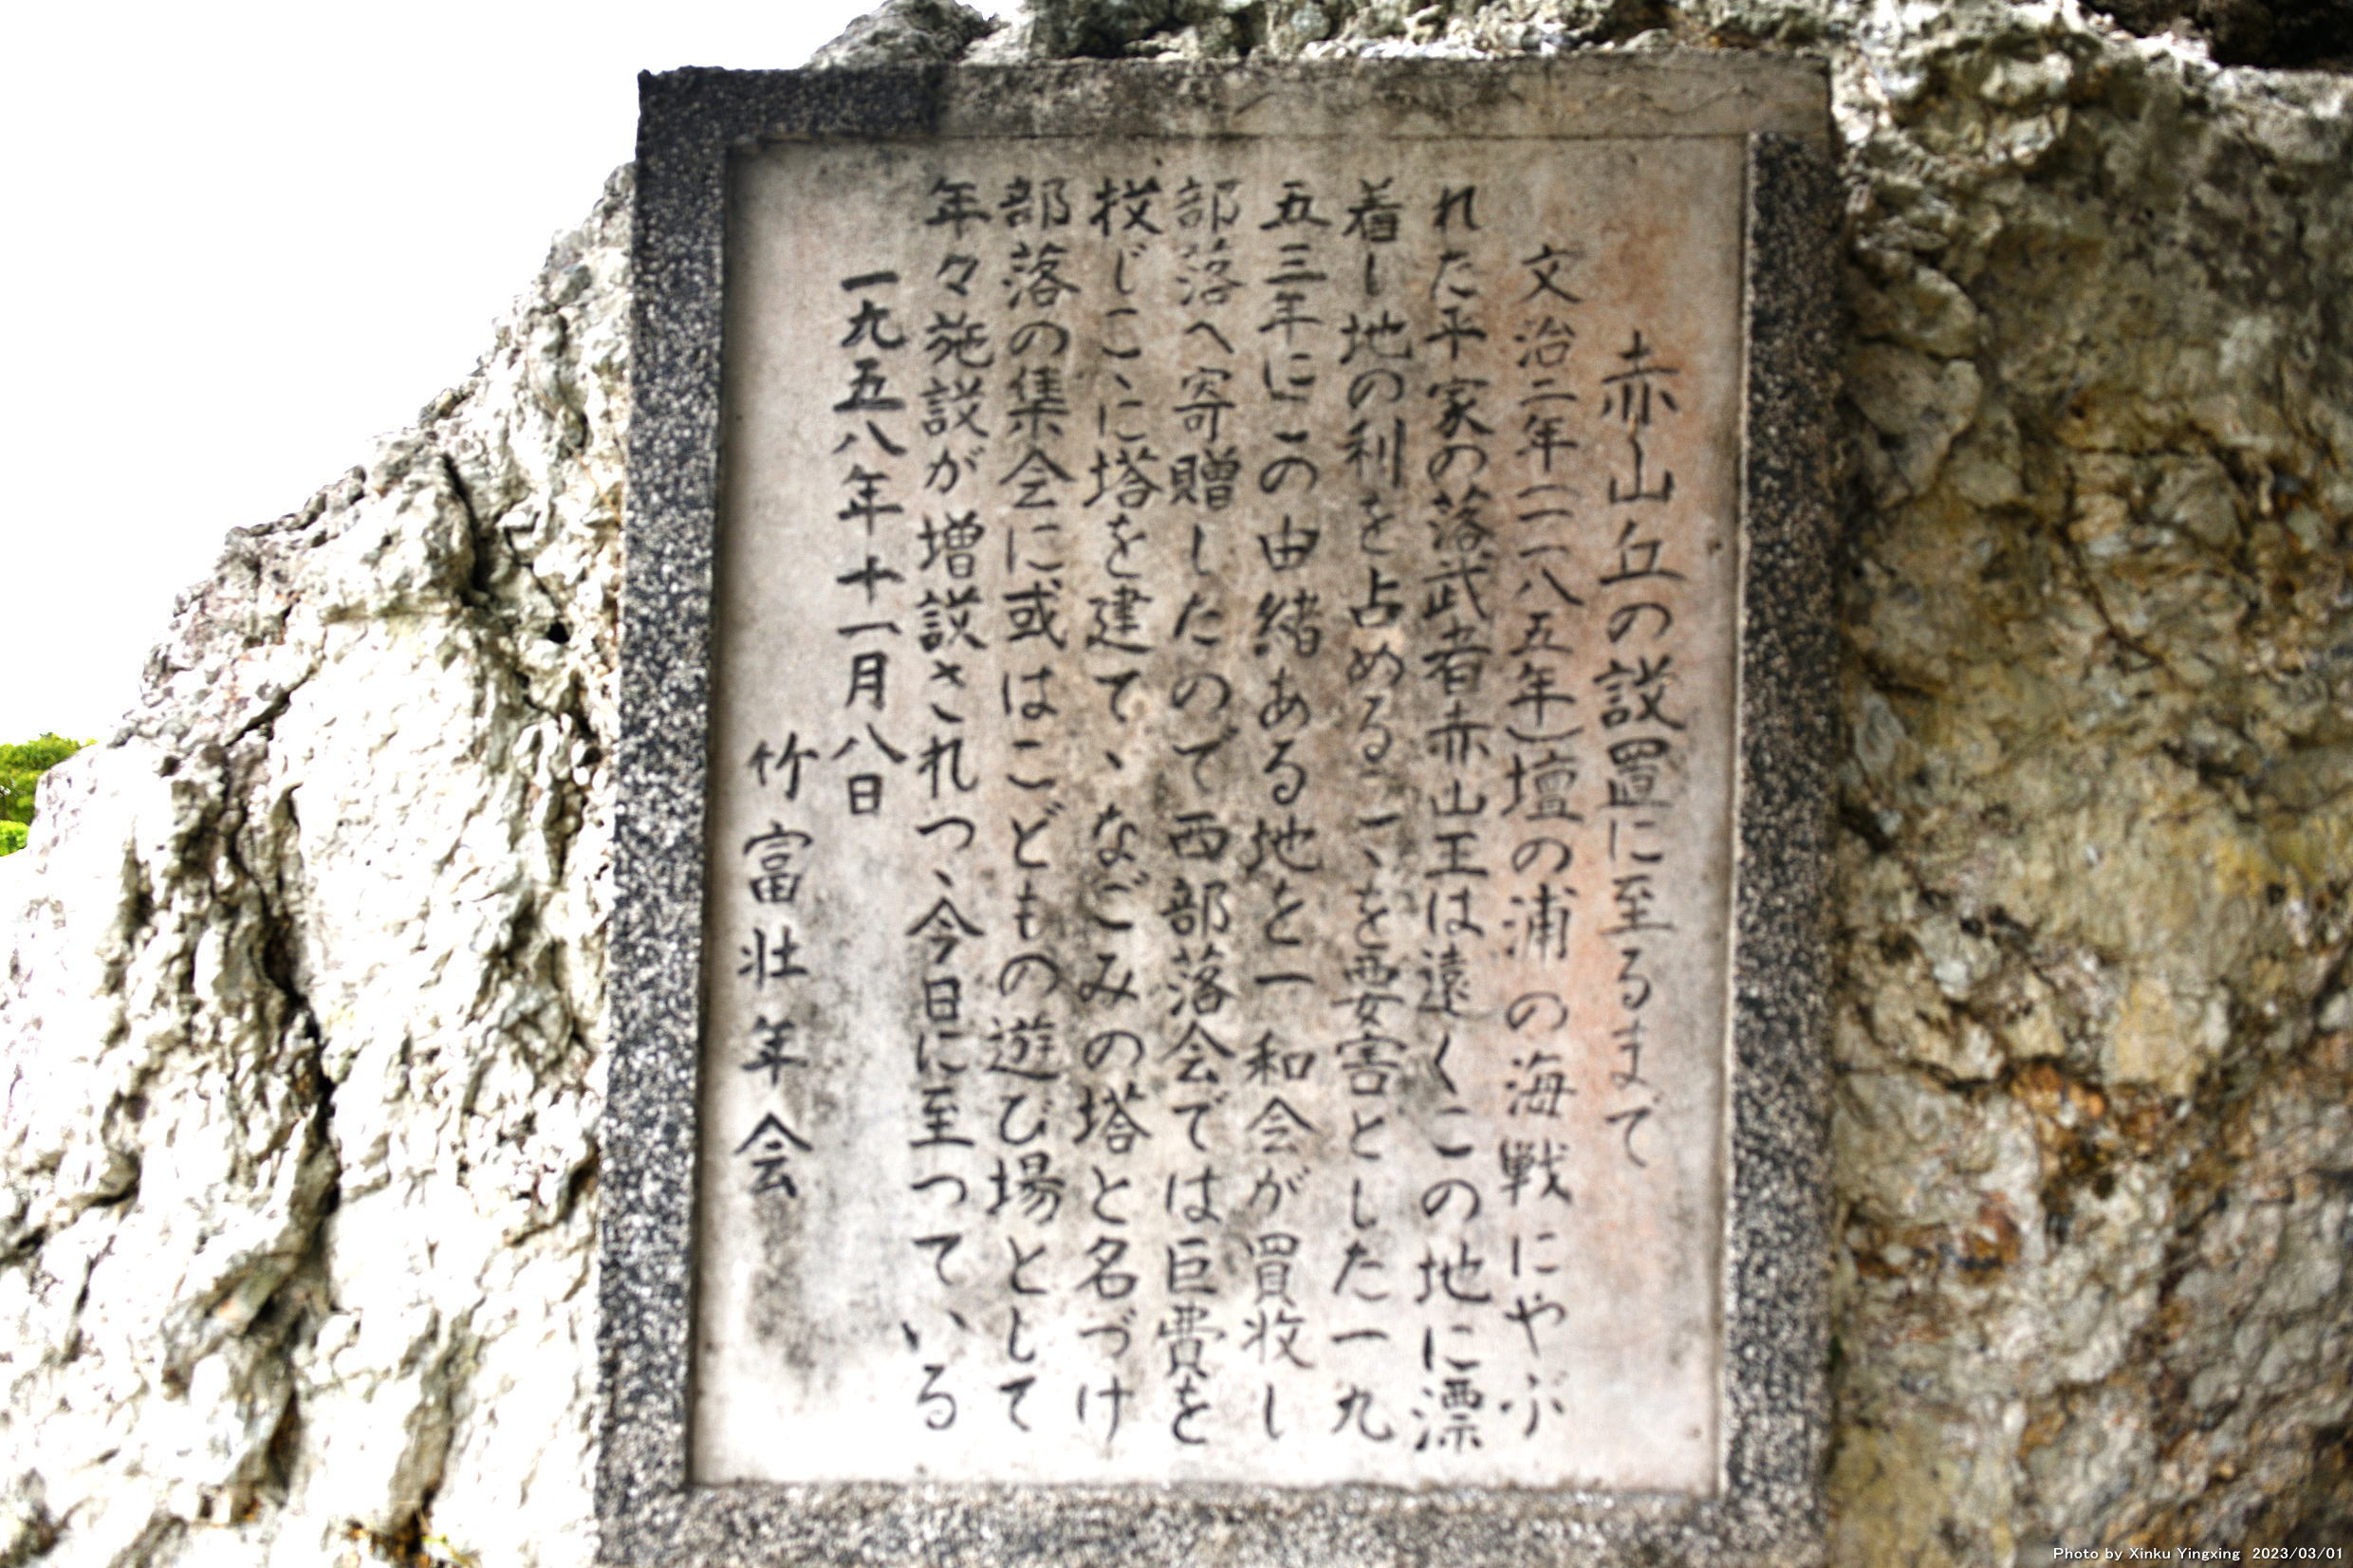 赤山丘の設置に至るまで
文治二年(一一八五年)壇の浦の海戦にやぶ
れた平家の落武者赤山王は遠くこの地に漂
着し地の利を占めるこゝを要害とした一九
五三年にこの由緒ある地を一和会が買收し
部落へ寄贈したので西部落会では巨費を
投じこゝに塔を建て、なごみの塔と名づけ
部落の集会に或はこどもの遊び場として
年々施設が増設されつゝ今日に至つている
一九五八年十一月八日
竹富壮年会
Photo by Xinku Yingxing 2023/03/01